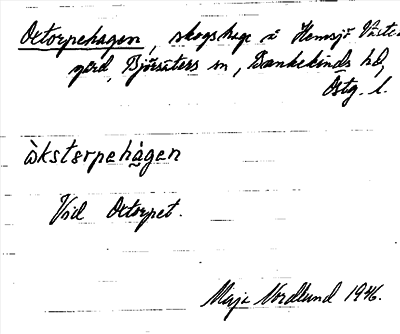 Oxtorpehagen, skogshage å Hemsjö Väster-
gård, Björsäters sn, Bankekinds hd,
Östg. l.
àkstɘrpehàgen
Vid Oxtorpet.
Maja Nordlund 1946.